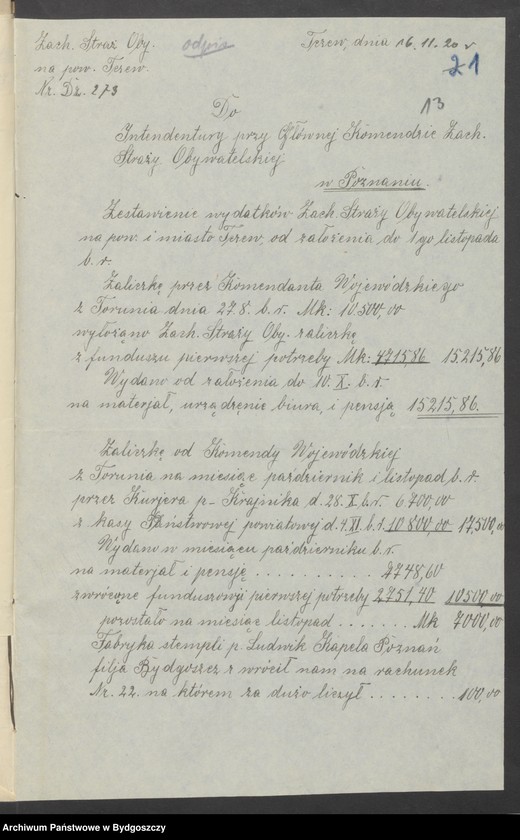 Zach. Straż Oby.
odpis
Tczew, dnia 16.11.20 r
na pow. Tczew.
21
Nr. Dz. 273
13
Do
Intendentury przy Głównej Komendzie Zach.
Straży Obywatelskiej
w Poznaniu.
Zestawienie wydatków Zach. Straży Obywatelskiej
na pow. i miasto Tczew, od założenia do 1go listopada
b. r.
Zaliczkę przez Komendanta Wojewódzkiego
z Torunia dnia 27.8. b. r. Mk: 10.500,00
wyłożąno Zach. Straży Oby. zaliczkę
z funduszu pierwszej potrzeby Mk: 4715,86 15.215,86
Wydano od założenia do 10. X. b. r.
na materjał, urządzenie biura, i pensją 15215,86.
Zaliczkę od Komendy Wojewódzkiej
z Torunia na miesiąc październik i listopad b. r.
przez Kurjera p. Krajnika d. 28. X. b. r. 6700,00
z kasy Państwowej powiatowej d. 4. XI. b. r. 10 800,00 17,500,00
Wydano w miesiącu październiku b. r.
na materjał i pensję . . . . . . . . . . . 7748,60
zwrócone funduszowi pierwszej potrzeby 2751,40 10500,00
pozostało na miesiąc listopad . . . . . . . Mk 7000,00
Fabryka stempli p. Ludwik Kapela Poznań
filja Bydgoszcz zwrócił nam na rachunek
Nr. 22. na którem za dużo liczył . . . . . . . . 100,00
Archiwum Państwowe w Bydgoszczy